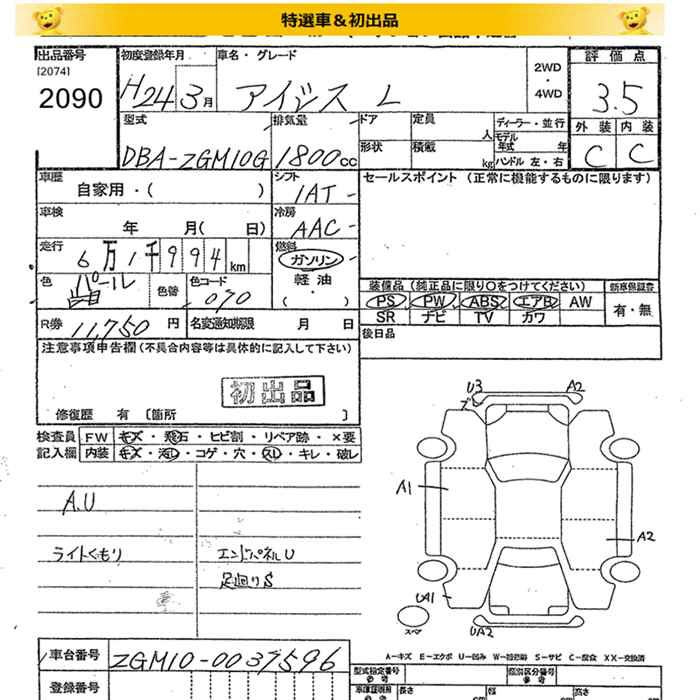 特選車＆初出品
出品番号
[2074]
2090
初度登録年月
H24 3月
車名・グレード
アイシス L
2WD
・
4WD
評価点
3.5
外装 内装
C C
型式
DBA-ZGM10G
排気量
1800cc
ドア
定員
人
形状
積載
kg
ディーラー・並行
モデル
年式 年
ハンドル 左・右
車歴
自家用・( )
シフト
1AT
セールスポイント (正常に機能するものに限ります)
車検
年 月( 日)
冷房
AAC
走行
6万1千994km
燃料
ガソリン
軽油
・
( )
色
パール
色替
色コード
070
装備品 (純正品に限り○をつけてください)
PS PW ABS エアB AW
SR ナビ TV カワ
新車保証書
有・無
R券 11,750円
名変通知期限 月 日
後日品
注意事項申告欄 (不具合内容等は具体的に記入して下さい)
初出品
修復歴 有 〔箇所 〕
検査員
記入欄
FW キズ・飛石・ヒビ割・リペア跡・×要
内装 キズ・汚レ・コゲ・穴・スレ・キレ・破レ
A.U
ライトくもり
エンドパネルU
足廻りS
U3
A2
A1
A2
UA1
UA2
スペア
A－キズ E－エクボ U－凹み W－補修跡 S－サビ C－腐食 XX－交換済
車台番号
ZGM10-0037596
登録番号
型式指定番号
参考
類別区分番号
参考
車庫証明用
参考
長さ
cm
幅
cm
高さ
cm